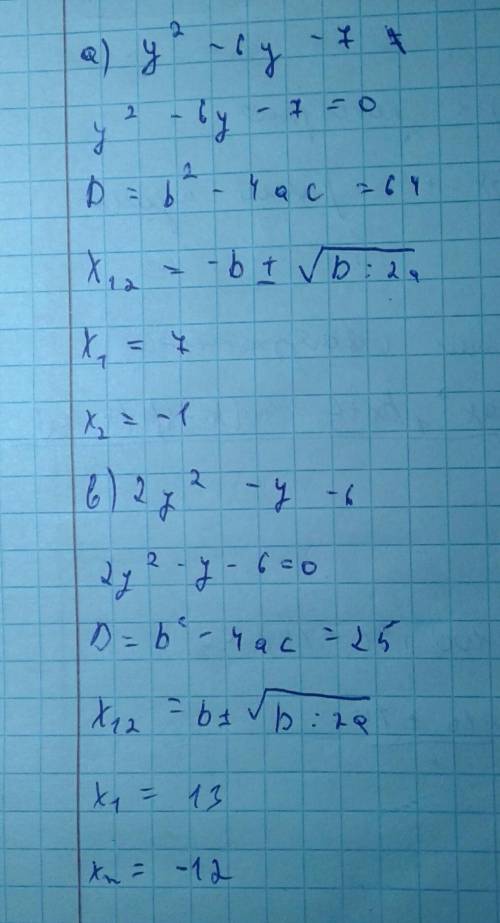 а) y² - 6y - 7
y² - 6y - 7 = 0
D = b² - 4ac = 64
x₁₂ = -b ± √D : 2a
x₁ = 7
x₂ = -1
в) 2y² - y - 6
2y² - y - 6 = 0
D = b² - 4ac = 25
x₁₂ = b ± √D : 2a
x₁ = 13
x₂ = -12